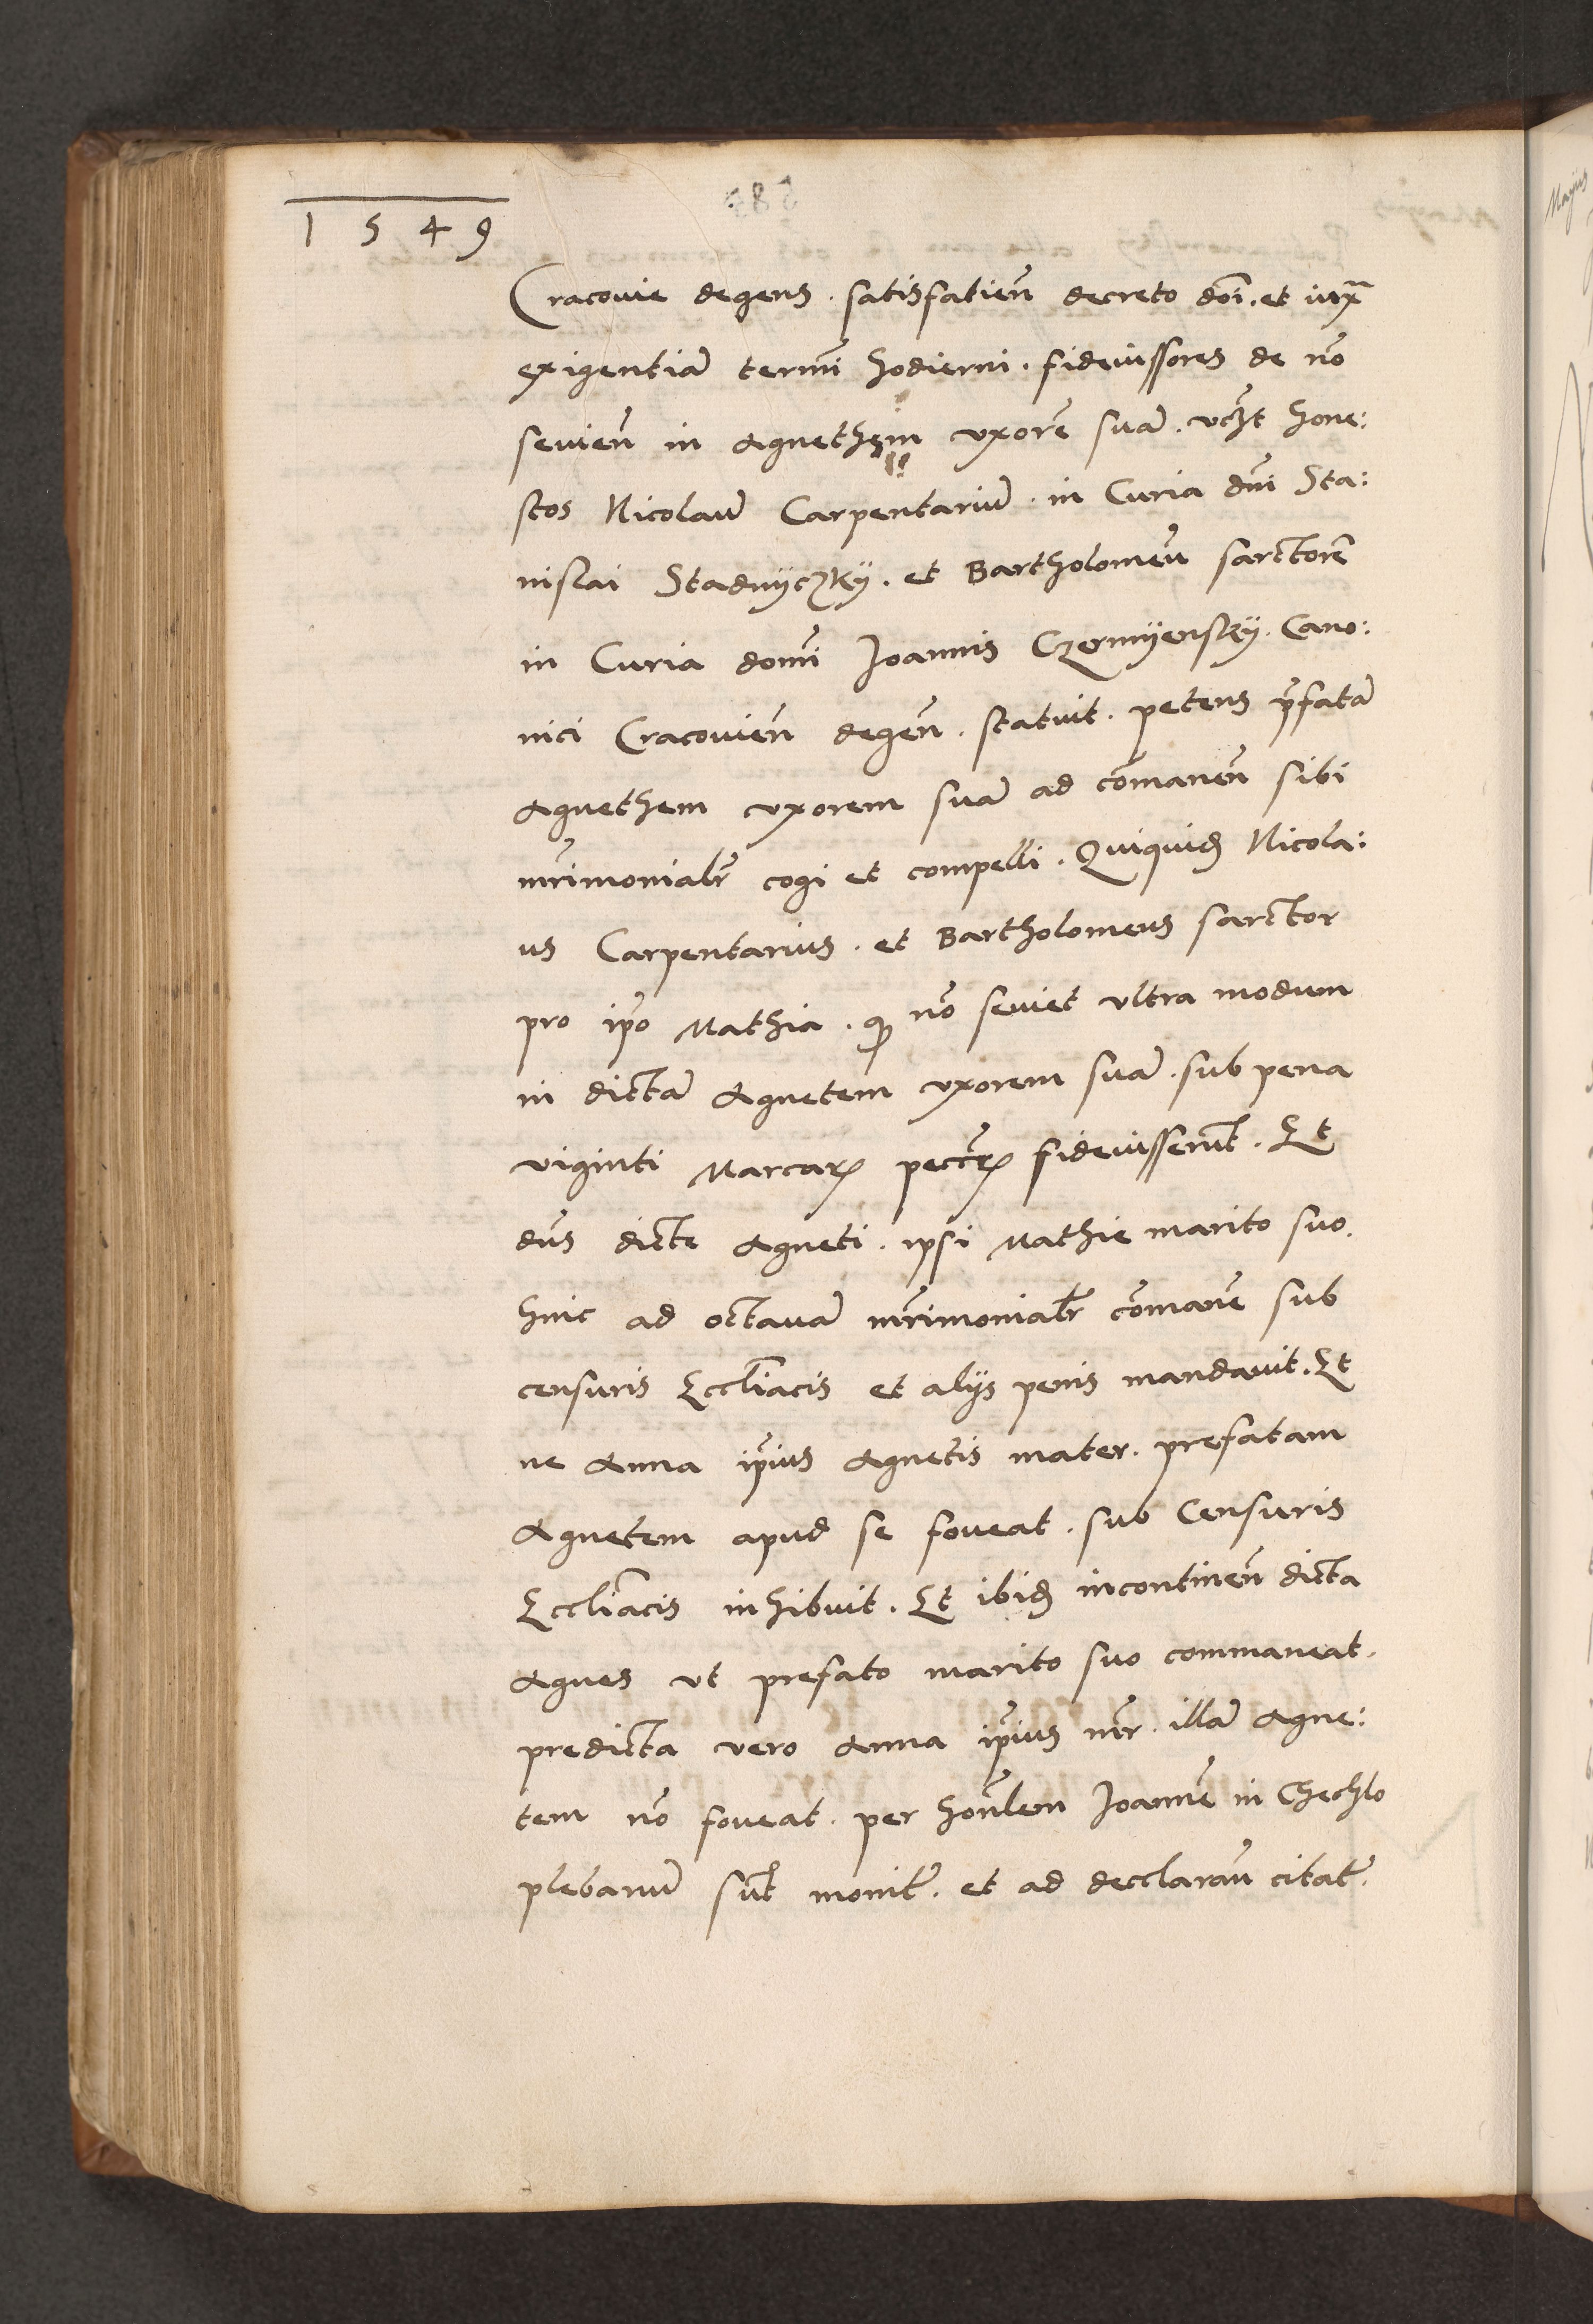 1549
Cracovie degens. satisfatien̄ decreto dōi. et iuxᵃ
exigentiā termi͞ hodierni. fideiussores de nō
sevien̄ in Agnethem uxorē suā. vc͞ꝫt hone:
stos Nicolaū Carpentariū. in Curia dn̄i Sta:
nislai Stadnyczky. et Bartholomeū sarctorē
in Curia domi͞ Joannis Czermyensky. Cano:
nici Cracovien̄ degen̄. statuit. petens p̄fatā
Agnethem uxorem suā ad cōmanen̄ sibi
mr̄imonialr̄ cogi et compelli. Quiquid̄ Nicola:
us Carpentarius. et Bartholomeus sarctor
pro ip̄o Mathia. ꝙ nō seviet ultra modum
in dictā Agnetem uxorem suā. sub pena
viginti Marcarꝝ pecc̄rꝝ fideiusserūt. Et
dn̄s dicte Agneti. ipsi Mathie marito suo.
hinc ad octavā mr̄imonialr̄ cōmanē sub
censuris Eccl̄iacis et alijs penis mandavit. Et
ne Anna ip̄ius Agnetis mater. prefatam
Agnetem apud se foveat. sub Censuris
Eccl̄iacis inhibuit. Et ibid̄ incontinen̄ dicta
Agnes ut prefato marito suo commaneat.
predicta vero Anna ip̄ius mr̄. illā Agne:
tem nō foveat. per hon̄lem Joannē in Chechlo
plebanū sūt monit̄. et ad decclaran̄ citat̄.